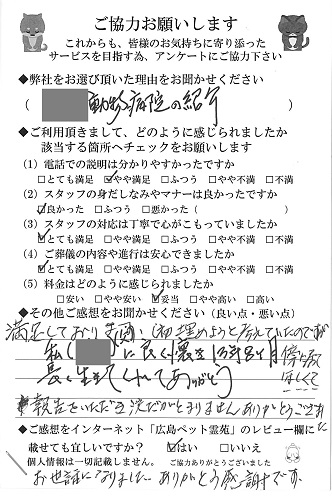 ご協力お願いします
これからも、皆様のお気持ちに寄り添った
サービスを目指す為、アンケートにご協力下さい
◆弊社をお選び頂いた理由をお聞かせください
( 動物病院の紹介 )
◆ご利用頂きまして、どのように感じられましたか
該当する箇所へチェックをお願いします
(1) 電話での説明は分かりやすかったですか
□とても満足 ☑やや満足 □ふつう □やや不満 □不満
(2) スタッフの身だしなみやマナーは良かったですか
☑良かった □ふつう □悪かった ( )
(3) スタッフの対応は丁寧で心がこもっていましたか
☑とても満足 □やや満足 □ふつう □やや不満 □不満
(4) ご葬儀の内容や進行は安心できましたか
☑とても満足 □やや満足 □ふつう □やや不満 □不満
(5) 料金はどのように感じられましたか
□安い □やや安い ☑妥当 □やや高い □高い
◆その他ご感想をお聞かせください (良い点・悪い点)
満足しております
私( )に良く懐き
長く生きてくれてありがとう
報告をいただき涙がとまりません ありがとうございました
◆ご感想をインターネット「広島ペット霊苑」のレビュー欄に
載せても宜しいですか? ☑はい □いいえ
個人情報は一切記載しません。 ご協力ありがとうございました
お世話になりました ありがとう感謝です。